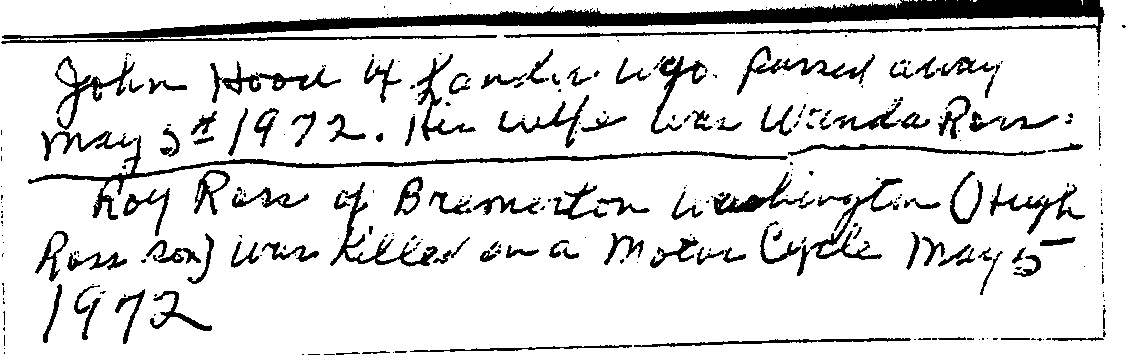 John Hood of Lander Wyo. passed away
May 3rd 1972. His wife was Wanda Ross.
Roy Ross of Bremerton Washington (Hugh
Ross son) was killed on a Motor Cycle May 5
1972